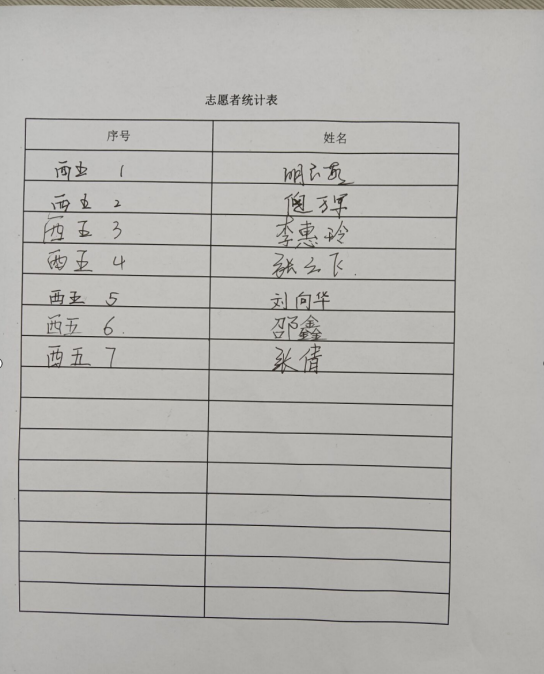 志愿者统计表
序号 姓名
西五 1 明云霞
西五 2 万军
西五 3 李惠玲
西五 4 张云飞.
西五 5 刘向华
西五 6. 邵鑫
西五 7 张倩